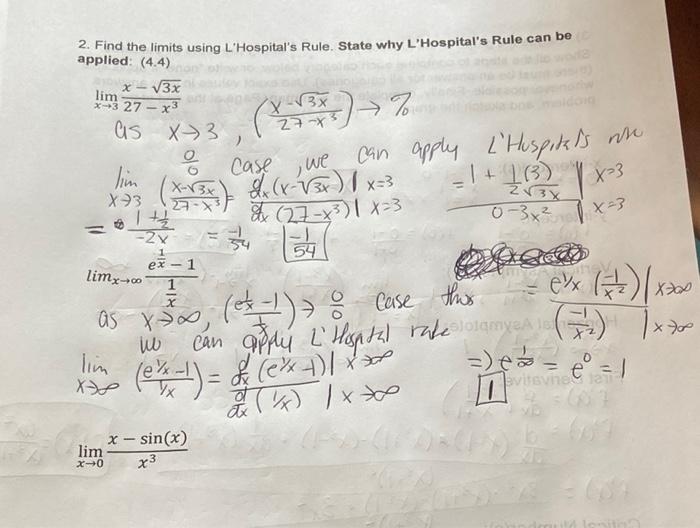 2. Find the limits using L'Hospital's Rule. State why L'Hospital's Rule can be
applied: (4.4)
lim x→3 (x − √3x)/(27 − x³)
as x→3, ((x-√3x)/(27-x³)) → %
0/0 case, we can apply L'Hospital's rule
lim x→3 ((x-√3x)/(27-x³)) = d/dx (x-√3x) | x=3 / d/dx (27-x³) | x=3
= 1 + 1/(2√3x) (3) | x=3 / 0-3x² | x=3
= (1 + 1/2)/(-2x) = -1/54 -1/54
lim x→∞ (e^(1/x) − 1)/(1/x)
as x→∞, ((e^(1/x) -1)/(1/x)) → 0/0 case thus
we can apply L'Hospital rule
lim x→∞ ((e^(1/x) -1)/(1/x)) = d/dx (e^(1/x) -1) | x→∞ / d/dx (1/x) | x→∞
= e^(1/x) (-1/x²) | x→∞ / (-1/x²) | x→∞
=) e^(1/∞) = e⁰ = 1
1
lim x→0 (x − sin(x))/x³